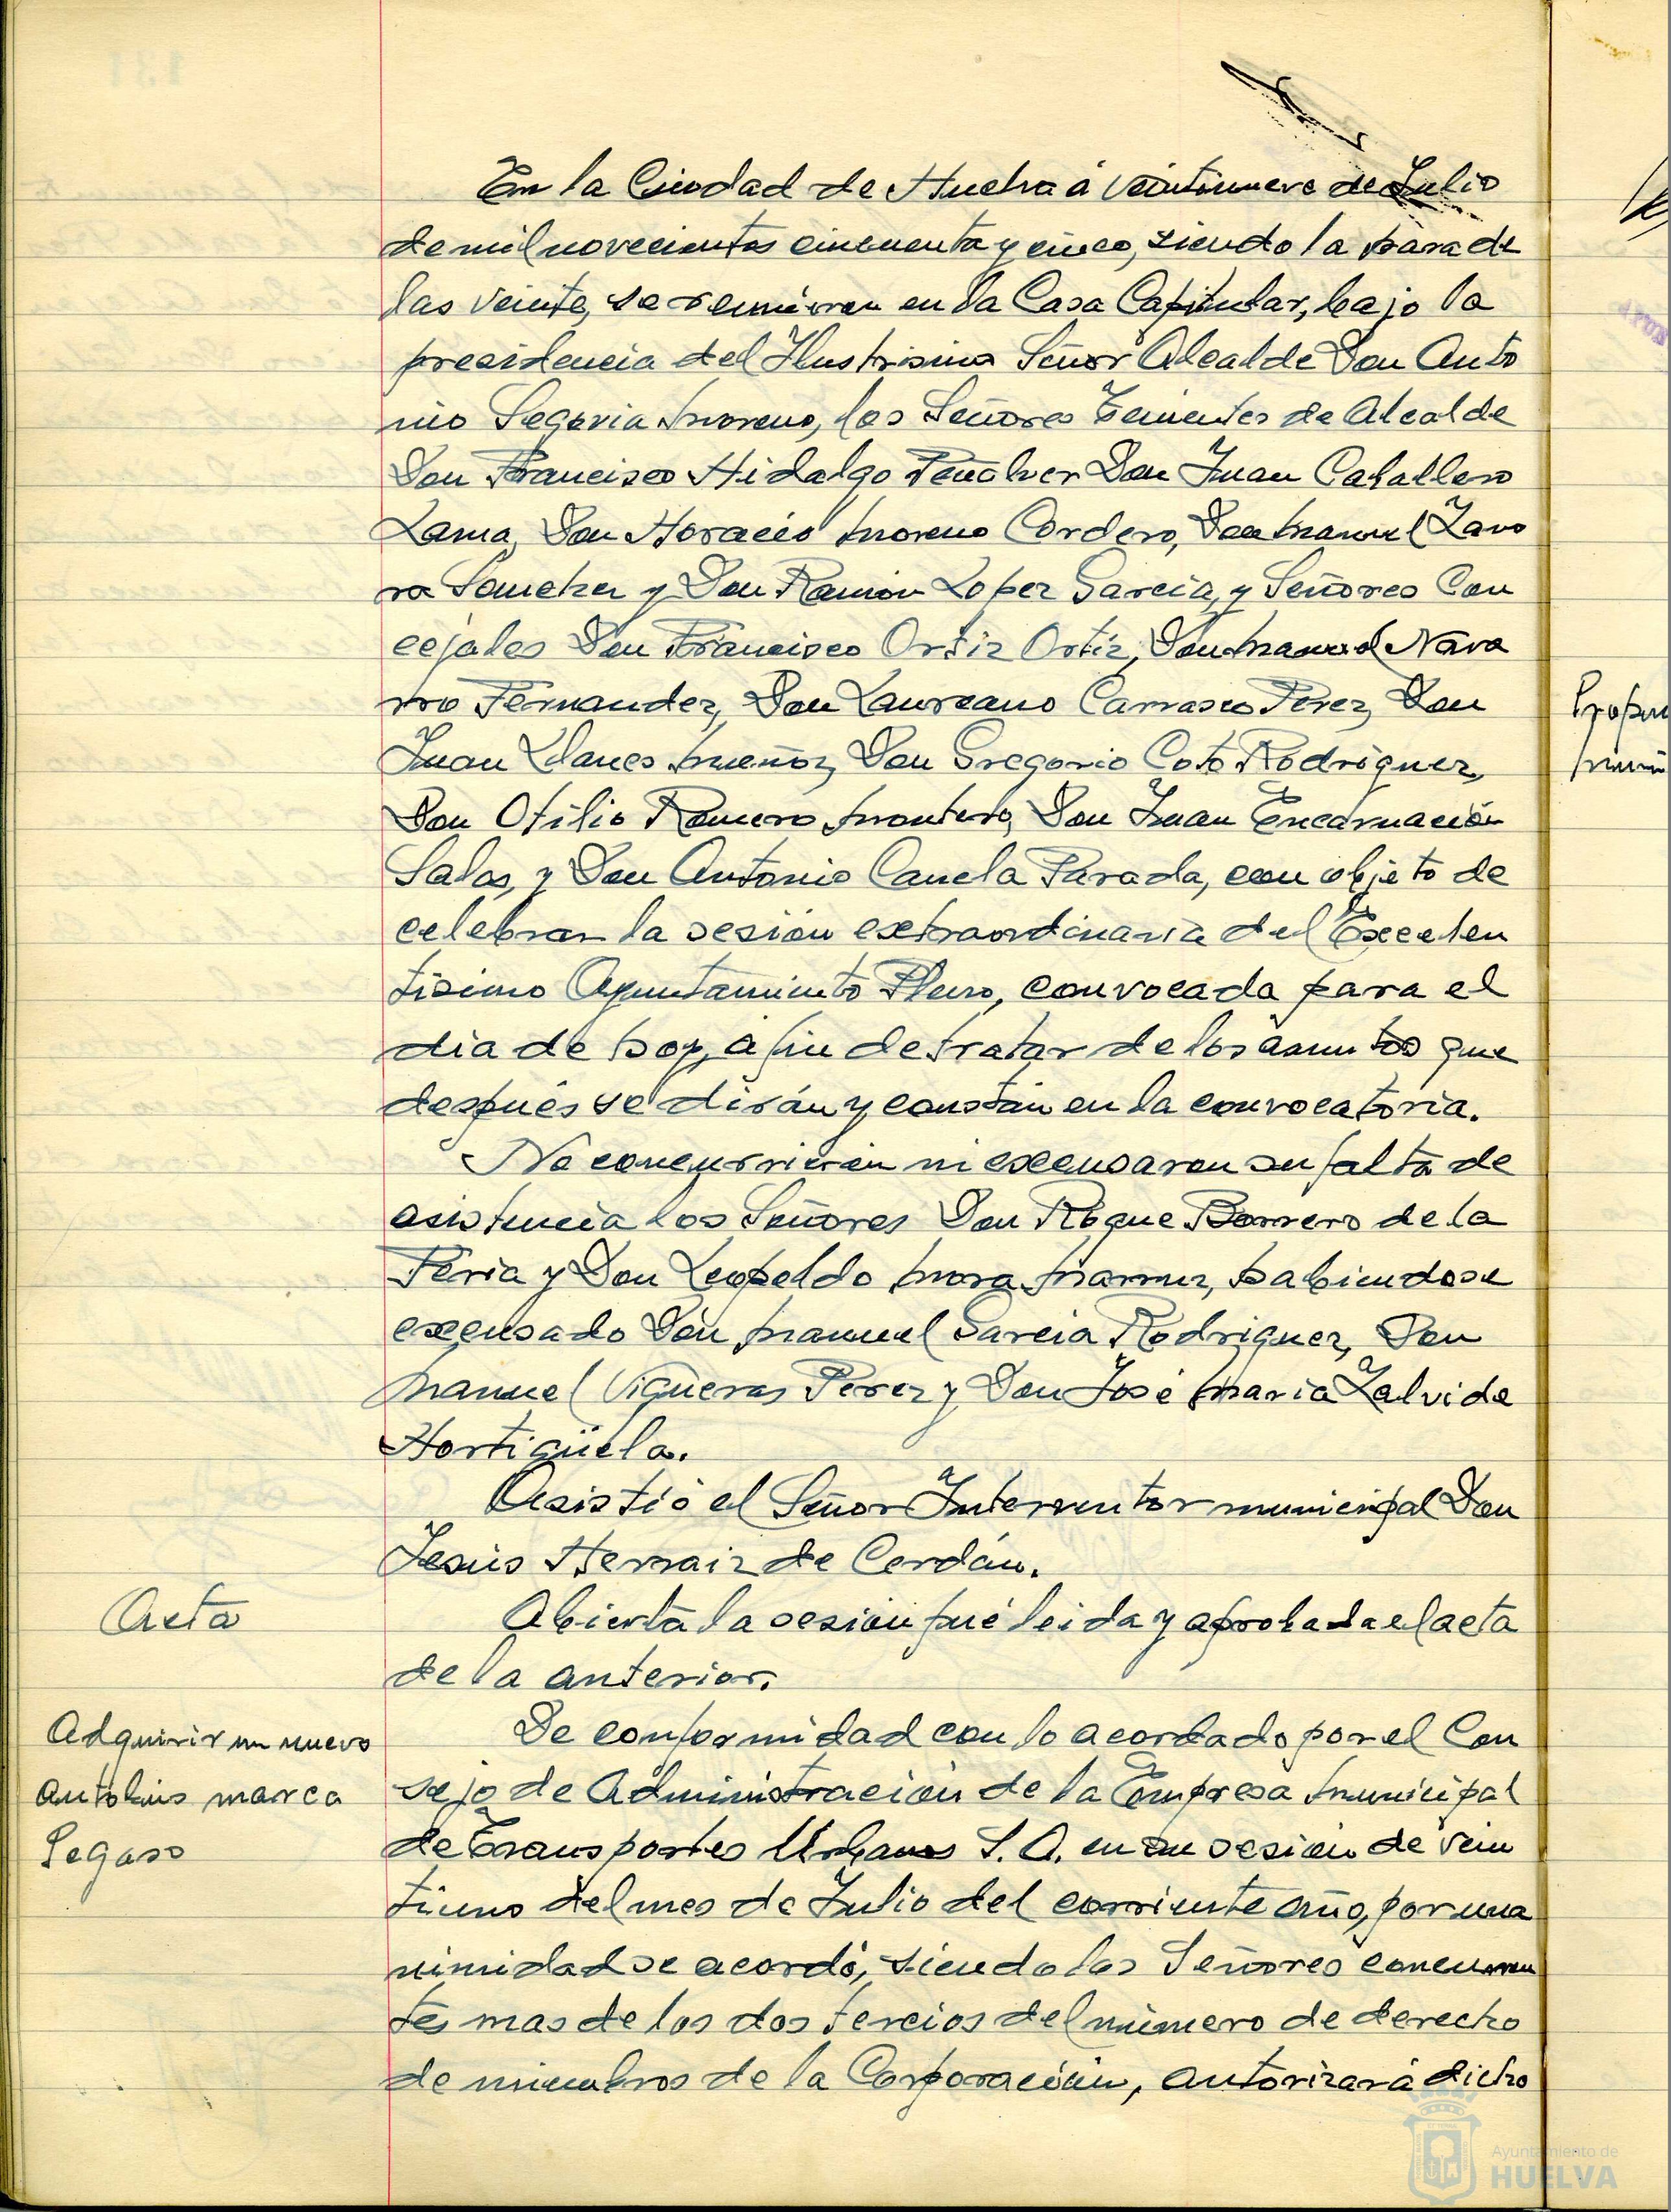 En la Ciudad de Huelva á veintinueve de Julio
de mil novecientos cincuenta y cinco, siendo la hora de
las veinte, se reunieron en la Casa Capitular, bajo la
presidencia del Ilustrisimo Señor Alcalde Don Anto
nio Segovia Moreno, los Señores Tenientes de Alcalde
Don Francisco Hidalgo Peñalver Don Juan Caballero
Lama, Don Horacio Moreno Cordero, Don Manuel Zamo
ra Sanchez y Don Ramón Lopez García, y Señores Con
cejales Don Francisco Ortiz Ortiz, Don Manuel Nava
rro Fernandez, Don Laureano Carrasco Perez, Don
Juan Llanes Muñoz, Don Gregorio Coto Rodriguez,
Don Otilio Romero Montero, Don Juan Encarnación
Salas, y Don Antonio Canela Parada, con objeto de
celebrar la sesión extraordinaria del Excelen
tisimo Ayuntamiento Pleno, convocada para el
dia de hoy, a fin de tratar de los asuntos que
después se dirán y constan en la convocatoria.
No concurrieron ni excusaron su falta de
asistencia los Señores Don Roque Borrero de la
Feria y Don Leopoldo Mora habiendose
excusado Don Manuel García Rodriguez, Don
Manuel Vigueras Perez y Don José María Zalvide
Hortigüela.
Asistió el Señor Interventor municipal Don
Jesús Herraiz de Cerdán.
Acta
Abierta la sesión fué leida y aprobada el acta
de la anterior.
Adquirir un nuevo
autobús marca
Pegaso
De conformidad con lo acordado por el Con
sejo de Administración de la Empresa Municipal
de Transportes Urbanos S.A. en su sesión de vein
tiuno del mes de Julio del corriente año, por una
nimidad se acordó, siendo los Señores concurren
tes mas de los dos tercios del número de derecho
de miembros de la Corporación, autorizar á dicho
Ayuntamiento de
HUELVA